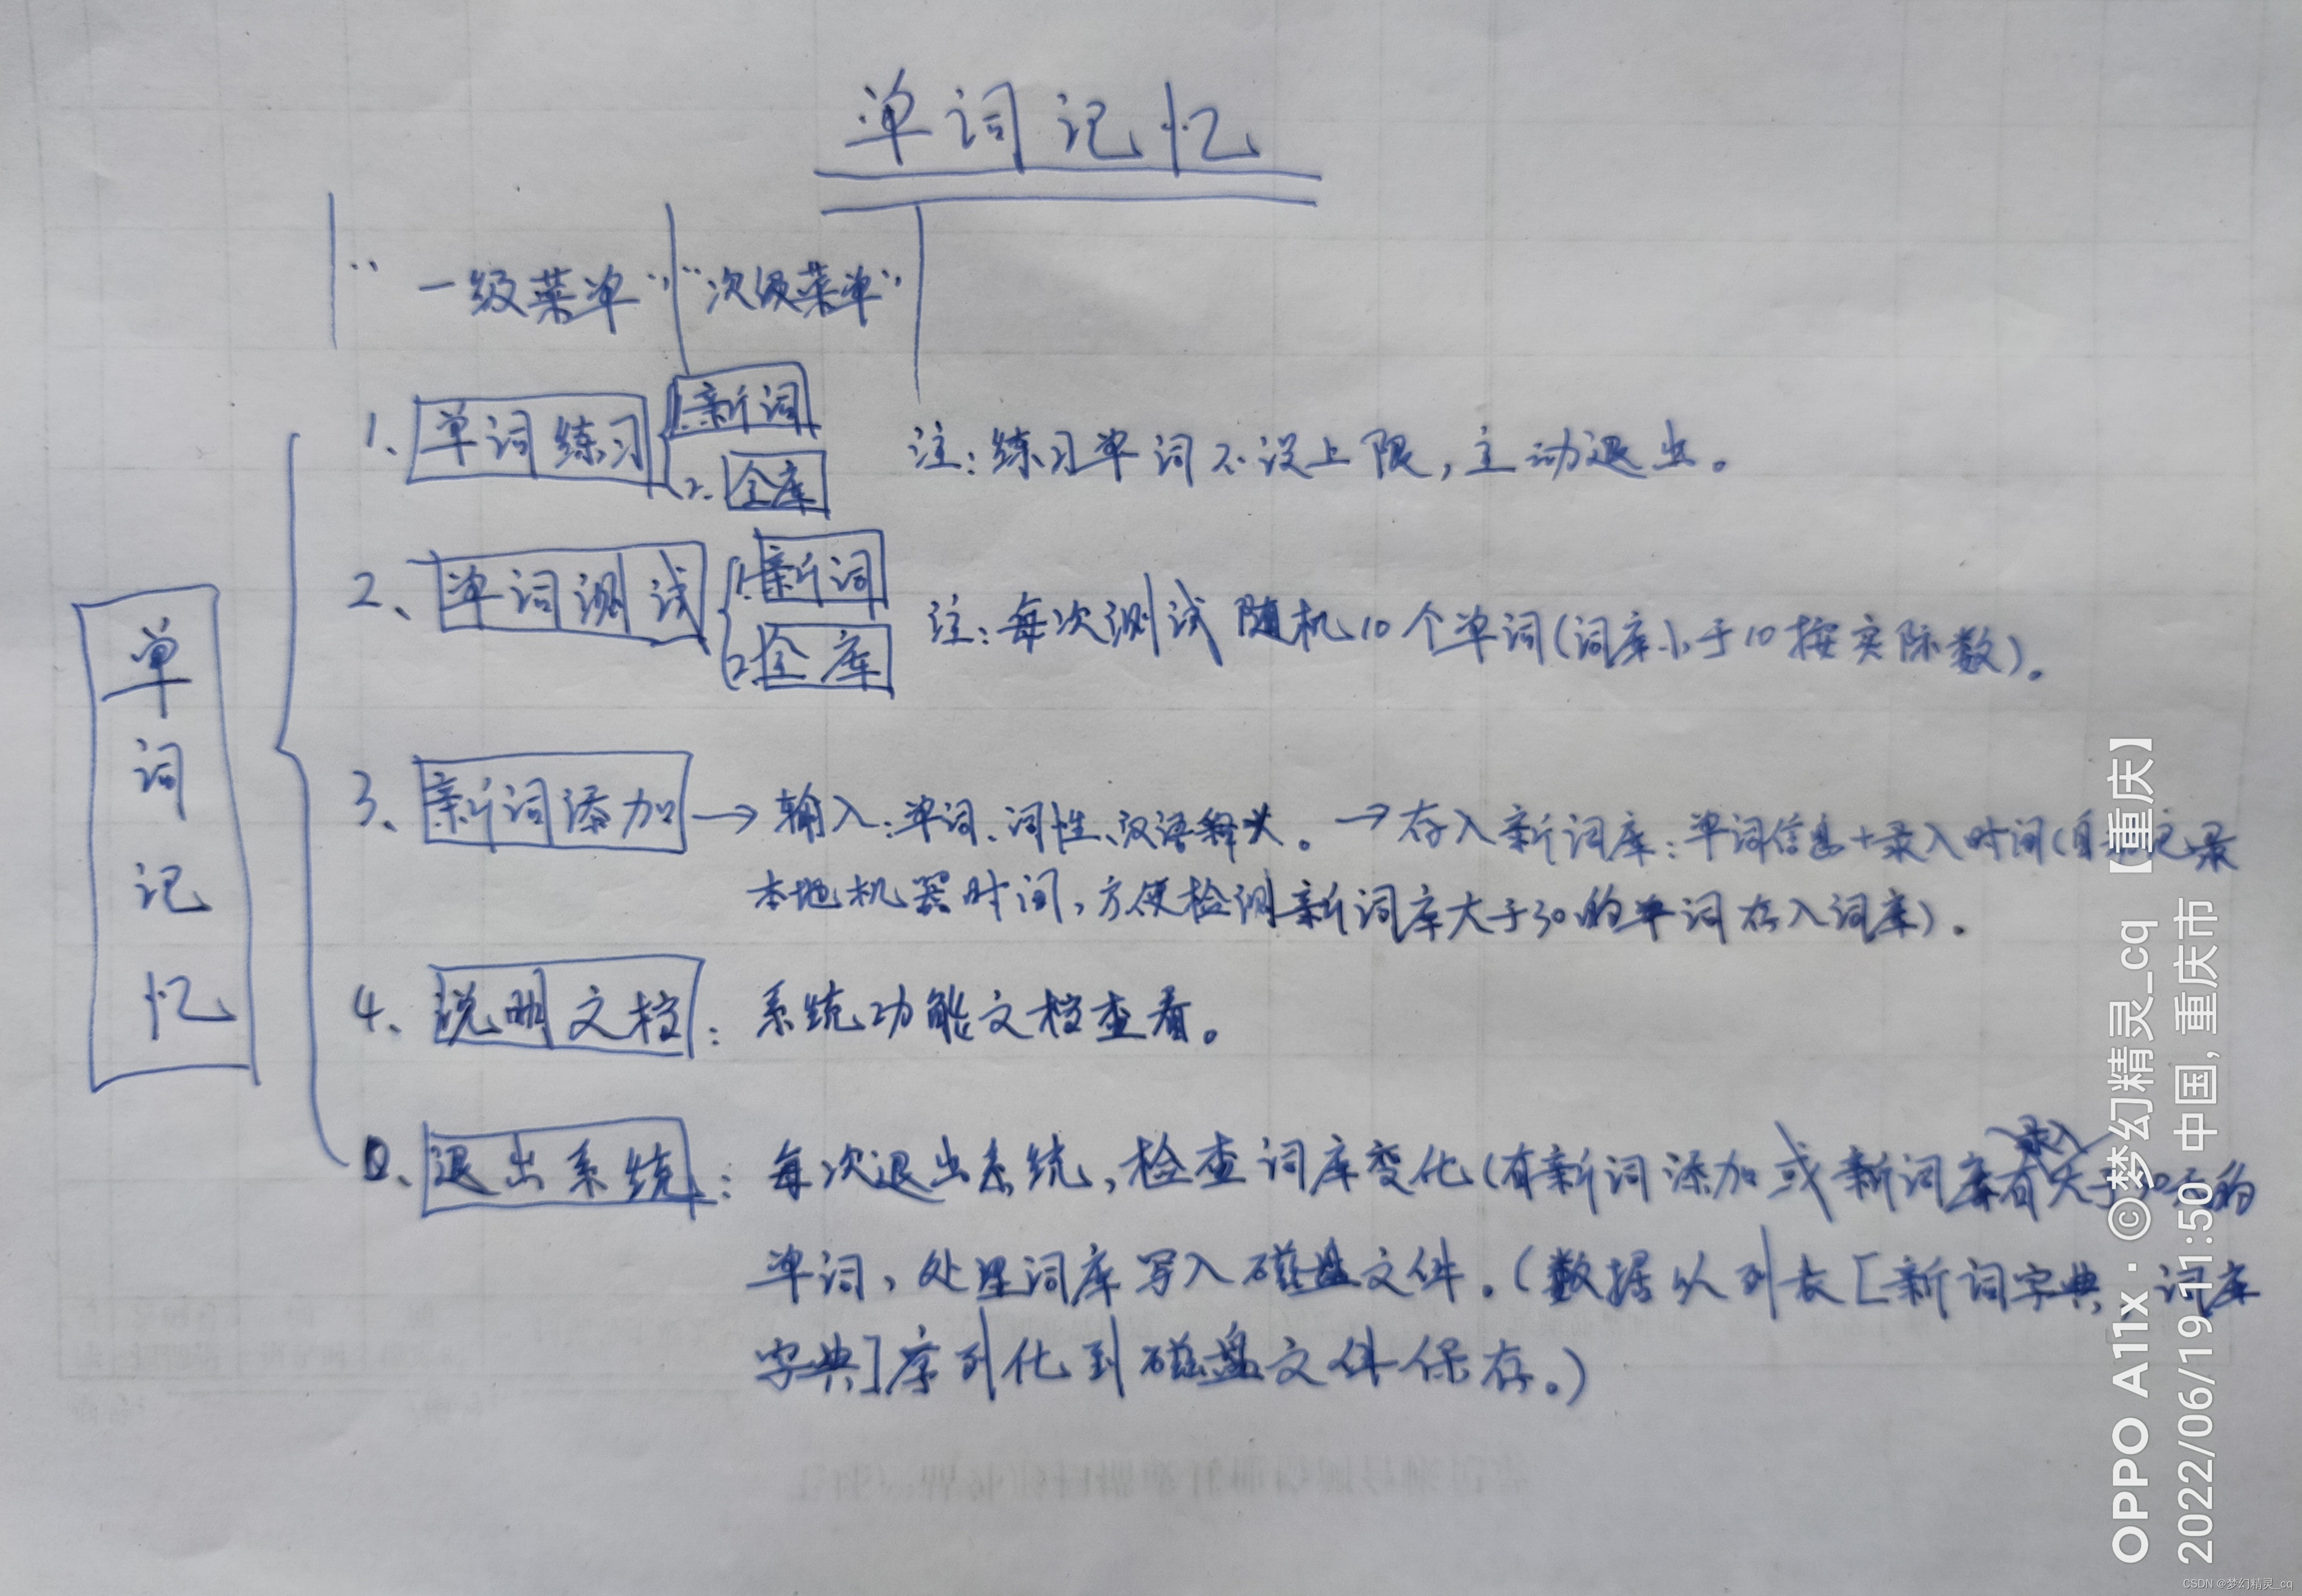 单词记忆
“一级菜单” “次级菜单”
单词记忆
1、单词练习 1.新词 注:练习单词不设上限,主动退出。
2.全库
2、单词测试 1.新词 注:每次测试随机10个单词(词库小于10按实际数)。
2.全库
3、新词添加→输入:单词、词性、汉语释义。→存入新词库:单词信息+录入时间(自 记录
本地机器时间,方便检测新词库大于30的单词存入词库)。
4、说明文档:系统功能文档查看。
录入
0、退出系统:每次退出系统,检查词库变化(有新词添加或新词库有大于30天的
单词,处理词库写入磁盘文件。(数据以列表[新词字典、词库
字典]序列化到磁盘文件保存。)
OPPO A11x · ©梦幻精灵_cq 【重庆】
2022/06/19 11:50 中国, 重庆市
CSDN @梦幻精灵_cq